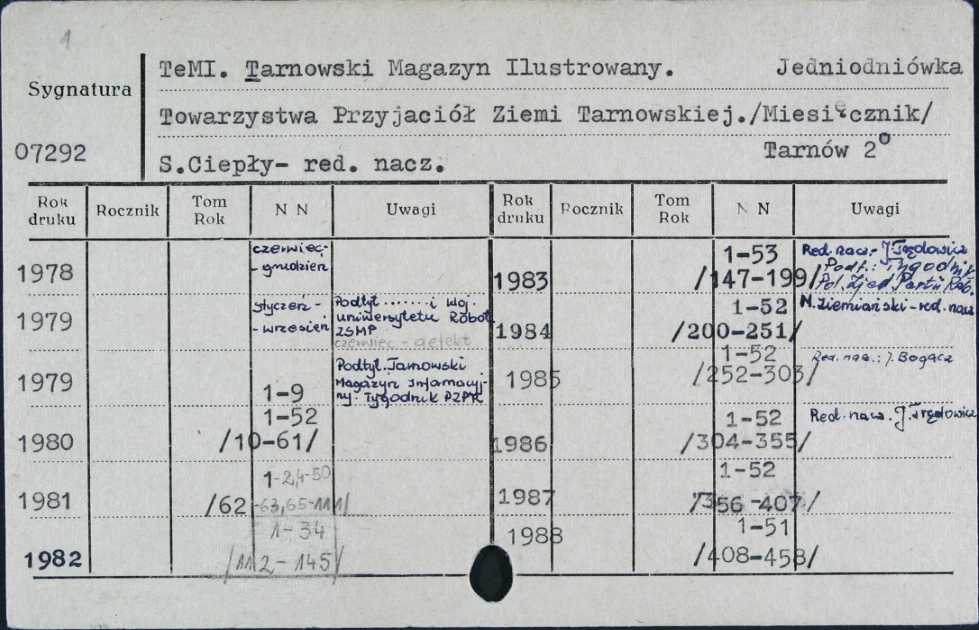 1
TeMI. Tarnowski Magazyn Ilustrowany. Jedniodniówka
Sygnatura
Towarzystwa Przyjaciół Ziemi Tarnowskiej./Miesięcznik/
07292
S.Ciepły- red. nacz. Tarnów 2°
Rok druku Rocznik Tom Rok N N Uwagi Rok druku Rocznik Tom Rok N N Uwagi
1978 czerwiec-
- grudzień
1979 styczeń -
- wrzesień
Podtyt. ....... i Woj.
uniwersytetu Robot.
ZSMP
czerwiec - defekt
1979 1-9
Podtyt. Tarnowski
Magazyn Informacyj-
ny. Tygodnik PZPR
1980 1-52
/10-61/
1981 1-2,4-50
/62-63,65-111/
1982 1-34
/112-145/
1983 1-53
/147-199/
Red. nacz.- J. Trędowicz
Podt.: Tygodnik
Pol. Zjed. Partii Rob.
1984 1-52
/200-251/
N. Ziemiański-red. nacz
1985 1-52
/252-303/
Red. nacz.: J. Bogacz
1986 1-52
/304-355/
Red. nacz. J. Trędowicz
1987 1-52
/356-407/
1988 1-51
/408-458/